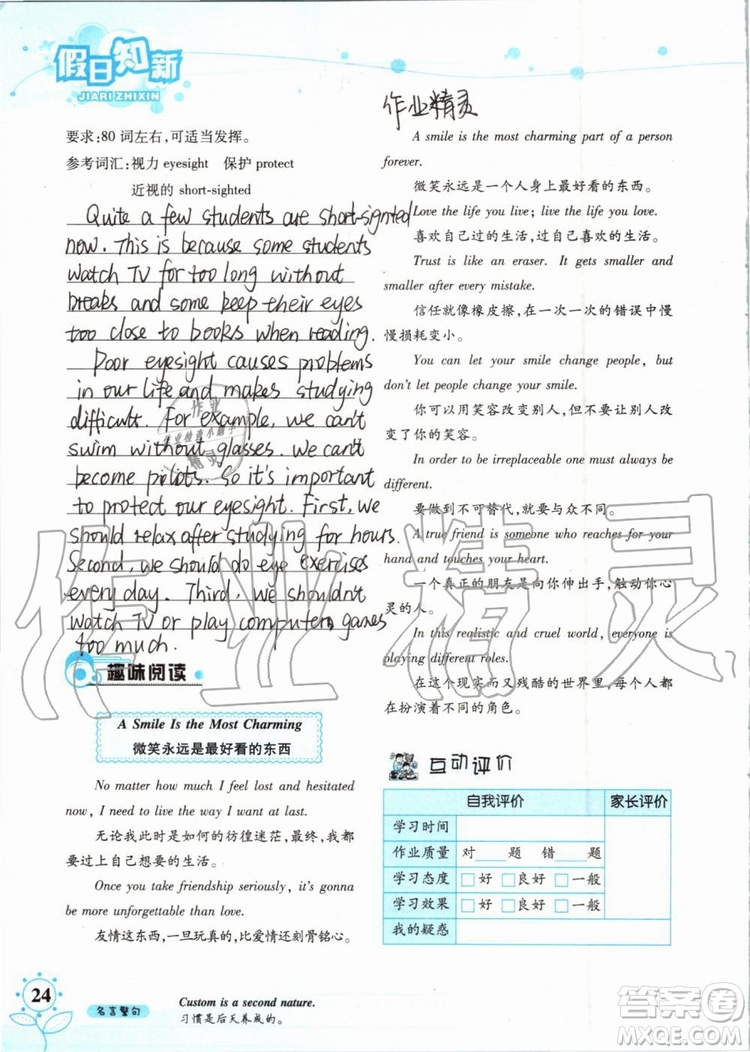 假日知新
JIARI ZHIXIN
要求:80 词左右,可适当发挥。
参考词汇:视力 eyesight 保护 protect
近视的 short-sighted
Quite a few students are short-sighted
now. This is because some students
watch TV for too long without
breaks and some keep their eyes
too close to books when reading.
Poor eyesight causes problems
in our life and makes studying
difficult. For example, we can't
swim without glasses. We can't
become pilots. So it's important
to protect our eyesight. First, we
should relax after studying for hours.
Second, we should do eye exercises
every day. Third, we shouldn't
watch TV or play computer games
too much.
趣味阅读
A Smile Is the Most Charming
微笑永远是最好看的东西
No matter how much I feel lost and hesitated
now, I need to live the way I want at last.
无论我此时是如何的彷徨迷茫,最终,我都
要过上自己想要的生活。
Once you take friendship seriously, it's gonna
be more unforgettable than love.
友情这东西,一旦玩真的,比爱情还刻骨铭心。
作业精灵
A smile is the most charming part of a person
forever.
微笑永远是一个人身上最好看的东西。
Love the life you live; live the life you love.
喜欢自己过的生活,过自己喜欢的生活。
Trust is like an eraser. It gets smaller and
smaller after every mistake.
信任就像橡皮擦,在一次一次的错误中慢
慢损耗变小。
You can let your smile change people, but
don't let people change your smile.
你可以用笑容改变别人,但别让别人改
变了你的笑容。
In order to be irreplaceable one must always be
different.
要做到不可替代,就要与众不同。
A true friend is someone who reaches for your
hand and touches your heart.
一个真正的朋友是向你伸出手,触动你心
灵的人。
In this realistic and cruel world, everyone is
playing different roles.
在这个现实而又残酷的世界里,每个人都
在扮演着不同的角色。
互动评价
自我评价 家长评价
学习时间
作业质量 对 题 错 题
学习态度 □好 □良好 □一般
学习效果 □好 □良好 □一般
我的疑惑
24
名言警句
Custom is a second nature.
习惯是后天养成的。
作业精灵
答案圈
MXQE.COM